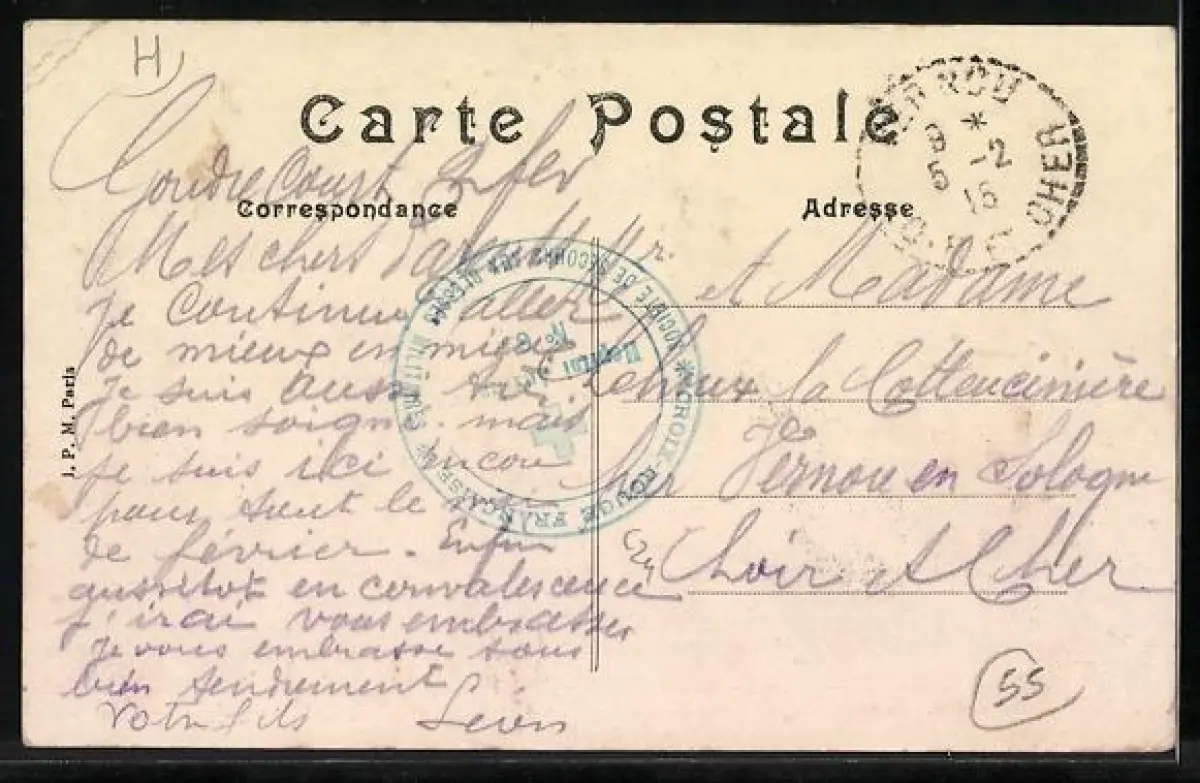 H
Carte Postale
Correspondance
Adresse
VERNOU
CHER
5 -2
15
J. P. M. Paris
Gondrecourt 2 fev
Mes chers
je continue d'aller
de mieux en mieux
Je suis aussi très
bien soigné mais
je suis ici encore
pour tout le
de février. Enfin
aussitot en convalescence
j'irai vous embrasser
Je vous embrasse tous
bien tendrement
Votre fils Leon
Mr. et Madame
la
par Vernou en Sologne
Loir et Cher
SOCIETE DE SECOURS AUX BLESSES MILITAIRES
CROIX ROUGE FRANCAISE
Hopital
No
55